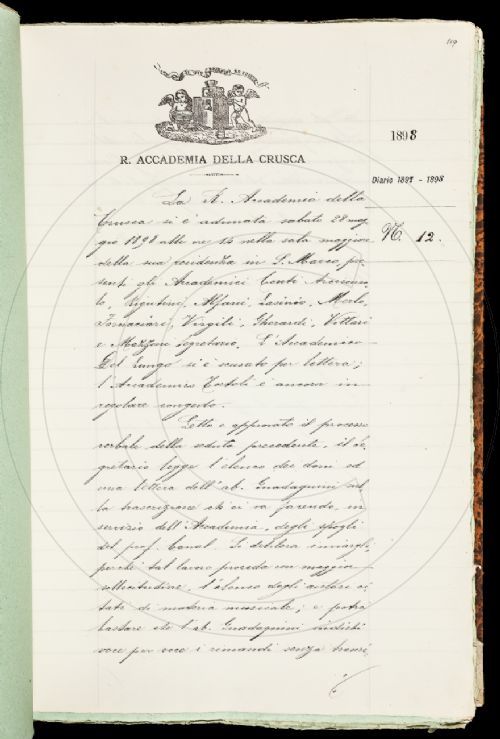 109
R. ACCADEMIA DELLA CRUSCA
1898
Diario 1897 - 1898
N. 12.
La R. Accademia della
Crusca si è adunata sabato 28 mag
gio 1898 alle ore 14 nella sala maggiore
della sua residenza in S. Marco, pre
senti gli Accademici Conti Arciconso
lo, Rigutini, Alfani, Lasinio, Merlo,
Fornaciari, Virgili, Gherardi, Villari
e Mazzoni segretario. L'Accademico
Del Lungo si è scusato per lettera;
l'Accademico Tortoli è ancora in
regolare congedo.
Letto e approvato il processo
verbale della seduta precedente, il se
gretario legge l'elenco dei doni ed
una lettera dell'ab. Guadagnini
la trascrizione ch'ei va facendo, in
servizio dell'Accademia, degli spogli
del prof. Canal. Si delibera inviargli,
perché tal lavoro proceda con maggior
sollecitudine, l'elenco degli autori ci
tati di materia musicale; e potrà
bastare che l'ab. Guadagnini
voce per voce i rimandi senza